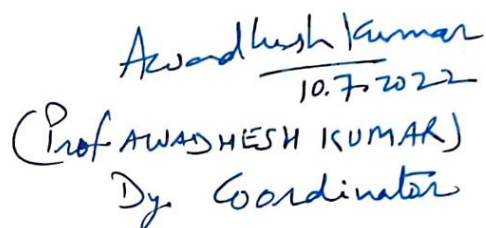 Awadhesh Kumar
10.7.2022
(Prof AWADHESH KUMAR)
Dy. Coordinator